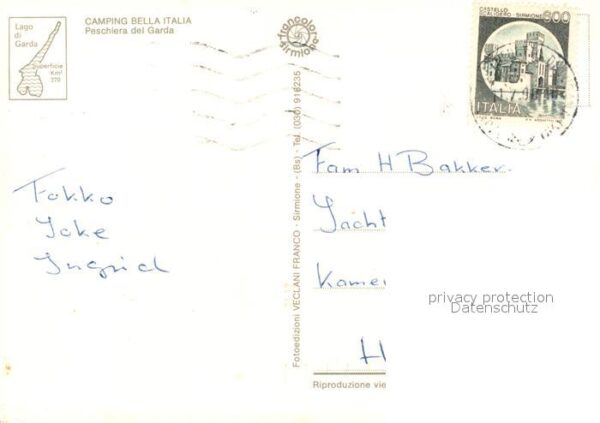 Lago
di
Garda
Superficie
Km²
370
CAMPING BELLA ITALIA
Peschiera del Garda
francolor
sirmione
CASTELLO
SCALIGERO SIRMIONE 600
ITALIA
Fotoedizioni VECLANI FRANCO - Sirmione - (Bs) - Tel. (030) 916235
Fokko
Joke
Ingrid
Fam H Bakker.
Jacht
Kamer
H
privacy protection
Datenschutz
Riproduzione vie